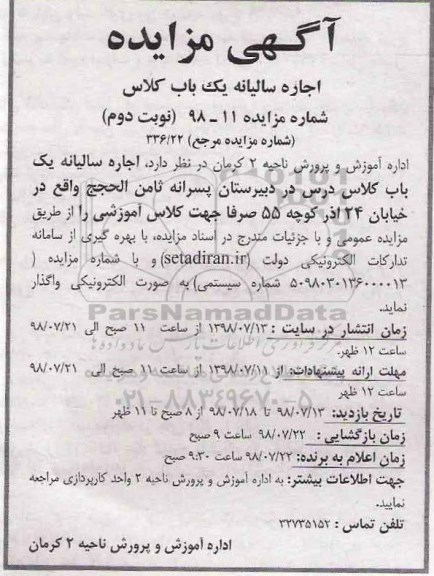 آگهی مزایده
اجاره سالیانه یک باب کلاس
شماره مزایده ۱۱ ـ ۹۸ (نوبت دوم)
(شماره مزایده مرجع) ۳۳۶/۲۲
اداره آموزش و پرورش ناحیه ۲ کرمان در نظر دارد، اجاره سالیانه یک
باب کلاس درس در دبیرستان پسرانه ثامن الحجج واقع در
خیابان ۲۴ آذر کوچه ۵۵ صرفا جهت کلاس آموزشی را از طریق
مزایده عمومی و با جزئیات مندرج در اسناد مزایده، با بهره گیری از سامانه
تدارکات الکترونیکی دولت (setadiran.ir) و با شماره مزایده (
۵۰۹۸۰۳۰۱۳۶۰۰۰۰۱۳ شماره سیستمی) به صورت الکترونیکی واگذار
نماید.
زمان انتشار در سایت : ۱۳۹۸/۰۷/۱۳ از ساعت ۱۱ صبح الی ۹۸/۰۷/۲۱
ساعت ۱۲ ظهر.
مهلت ارائه پیشنهادات: از ۱۳۹۸/۰۷/۱۱ از ساعت ۱۱ صبح الی ۹۸/۰۷/۲۱
ساعت ۱۲ ظهر
تاریخ بازدید: ۹۸/۰۷/۱۳ تا ۹۸/۰۷/۱۸ از ۸ صبح تا ۱۱ ظهر
زمان بازگشایی : ۹۸/۰۷/۲۲ ساعت ۹ صبح
زمان اعلام به برنده: ۹۸/۰۷/۲۲ ساعت ۹:۳۰ صبح
جهت اطلاعات بیشتر: به اداره آموزش و پرورش ناحیه ۲ واحد کارپردازی مراجعه
نمایید.
تلفن تماس : ۳۲۷۳۵۱۵۲
اداره آموزش و پرورش ناحیه ۲ کرمان
ParsNamadData
۰۲۱-۸۸۳۴۹۶۷۰-۵